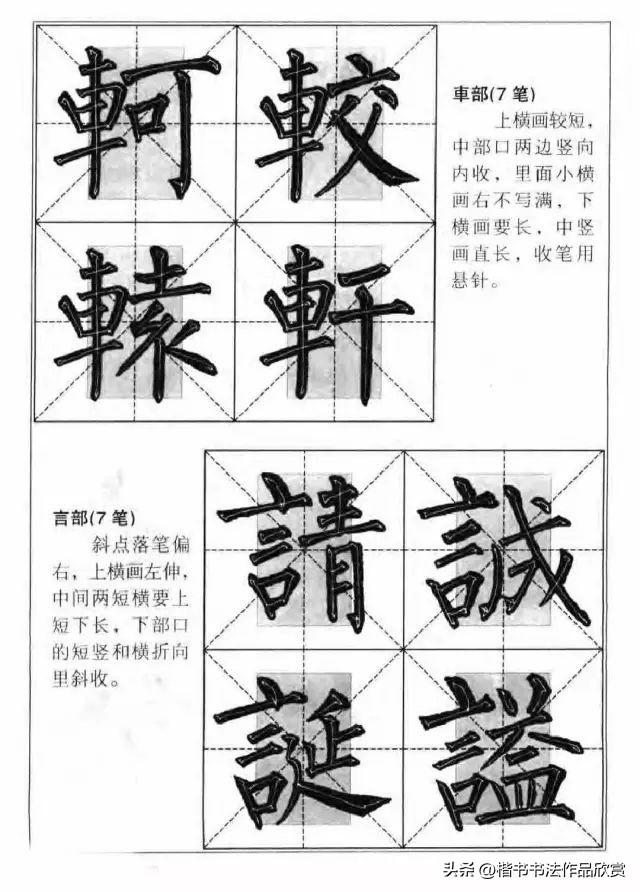 軻較
車部(7 笔)
上横画较短，
中部口两边竖向
内收，里面小横
画右不写满，下
横画要长，中竖
画直长，收笔用
悬针。
轅軒
言部(7 笔)
斜点落笔偏
右，上横画左伸，
中间两短横要上
短下长，下部口
的短竖和横折向
里斜收。
請誠
誕謚
头条 @楷书书法作品欣赏